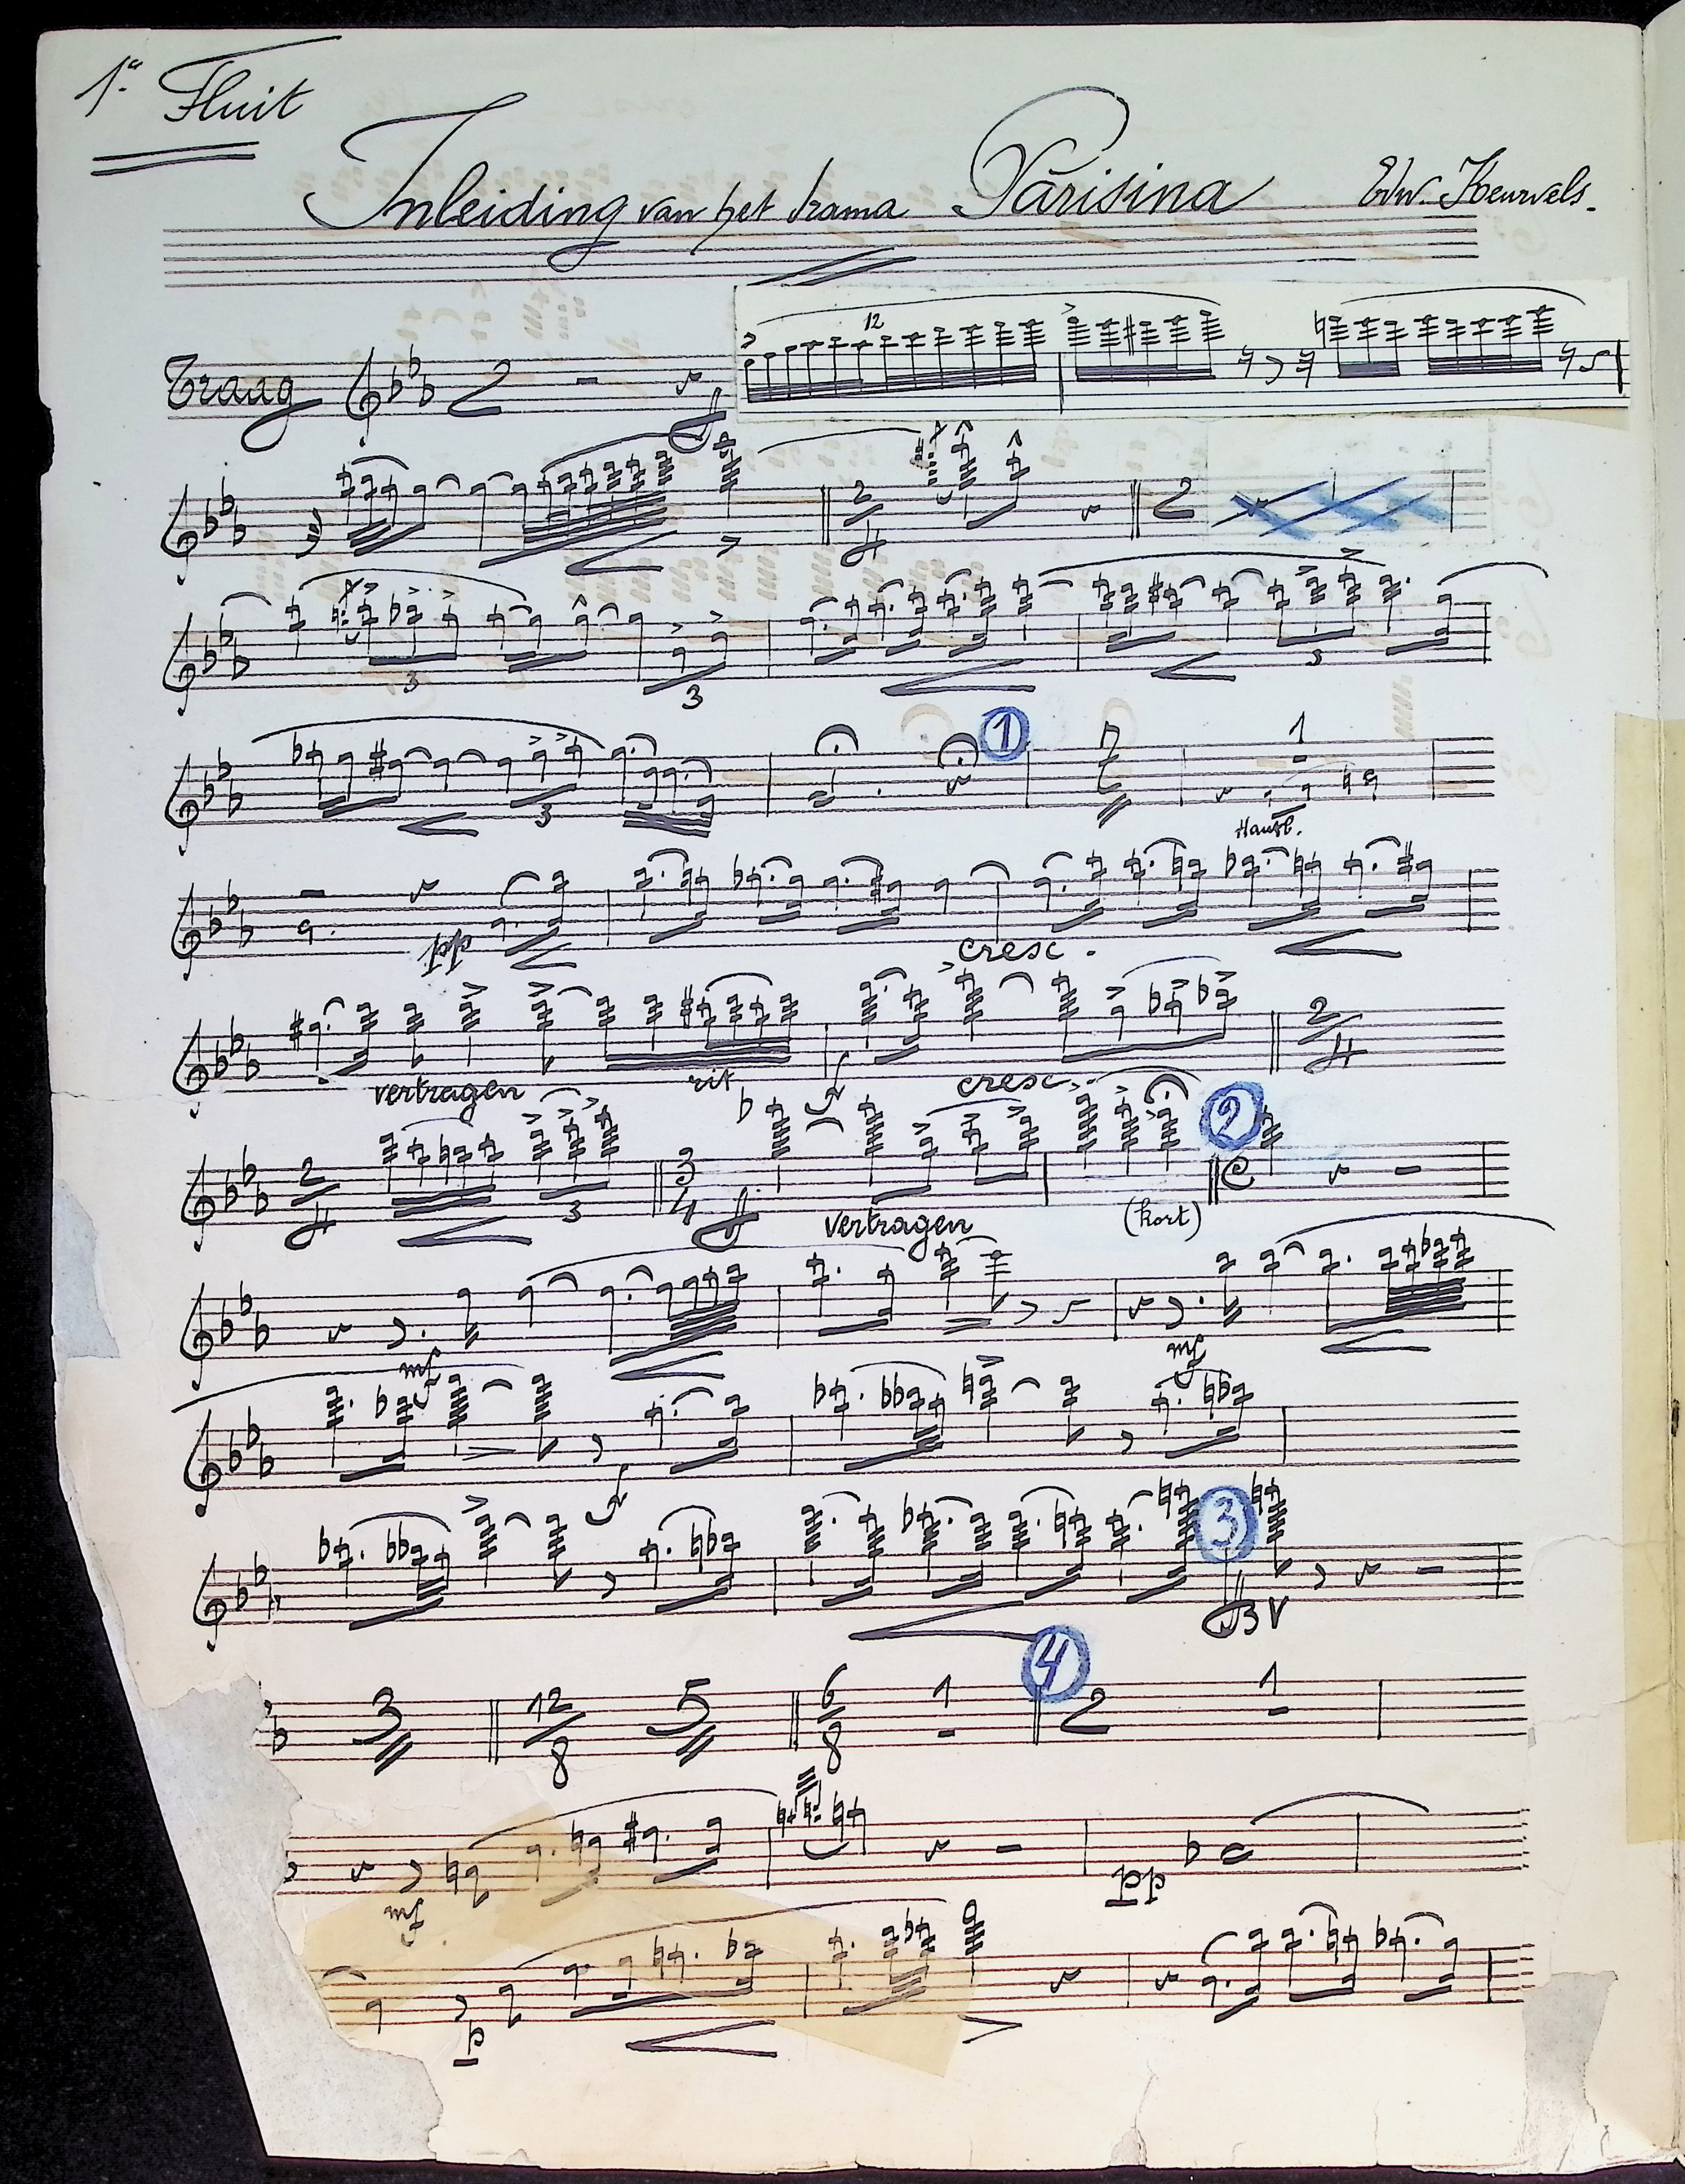 1a Fluit
Inleiding van het drama Parisina Edw. Keurvels.
Traag 2 12
2 4 2
3 3 3
3 1 7 1
Hautb.
pp cresc.
2 4
vertragen rit f cresc.
2 4 3 3 4 2 C
vertragen (kort)
mf mf
f
3
3 12 8 5 6 8 1 4 2 1
mf pp
p